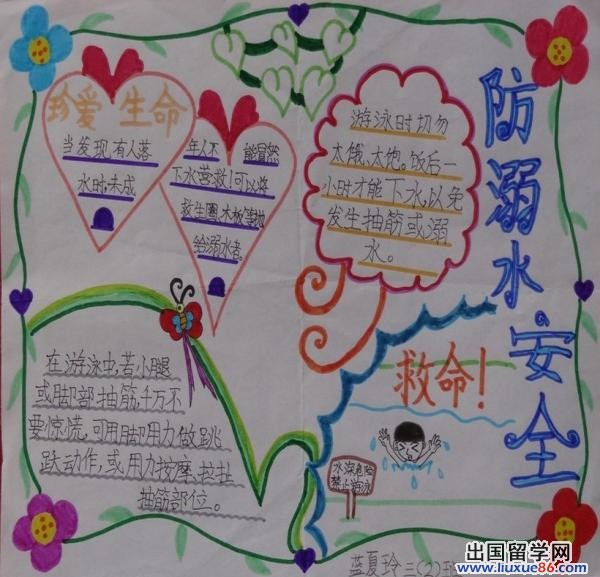 防溺水安全
珍爱生命
当发现有人落
水时,未成
年人不能冒然
下水营救!可以将
救生圈、木板等抛
给溺水者。
游泳时切勿
太饿、太饱。饭后一
小时才能下水,以免
发生抽筋或溺
水。
在游泳中,若小腿
或脚部抽筋,千万不
要惊慌,可用脚用力做跳
跃动作,或用力按摩、拉扯
抽筋部位。
救命!
水深危险
禁止游泳
蓝夏玲 三(2)班
出国留学网
www.liuxue86.com